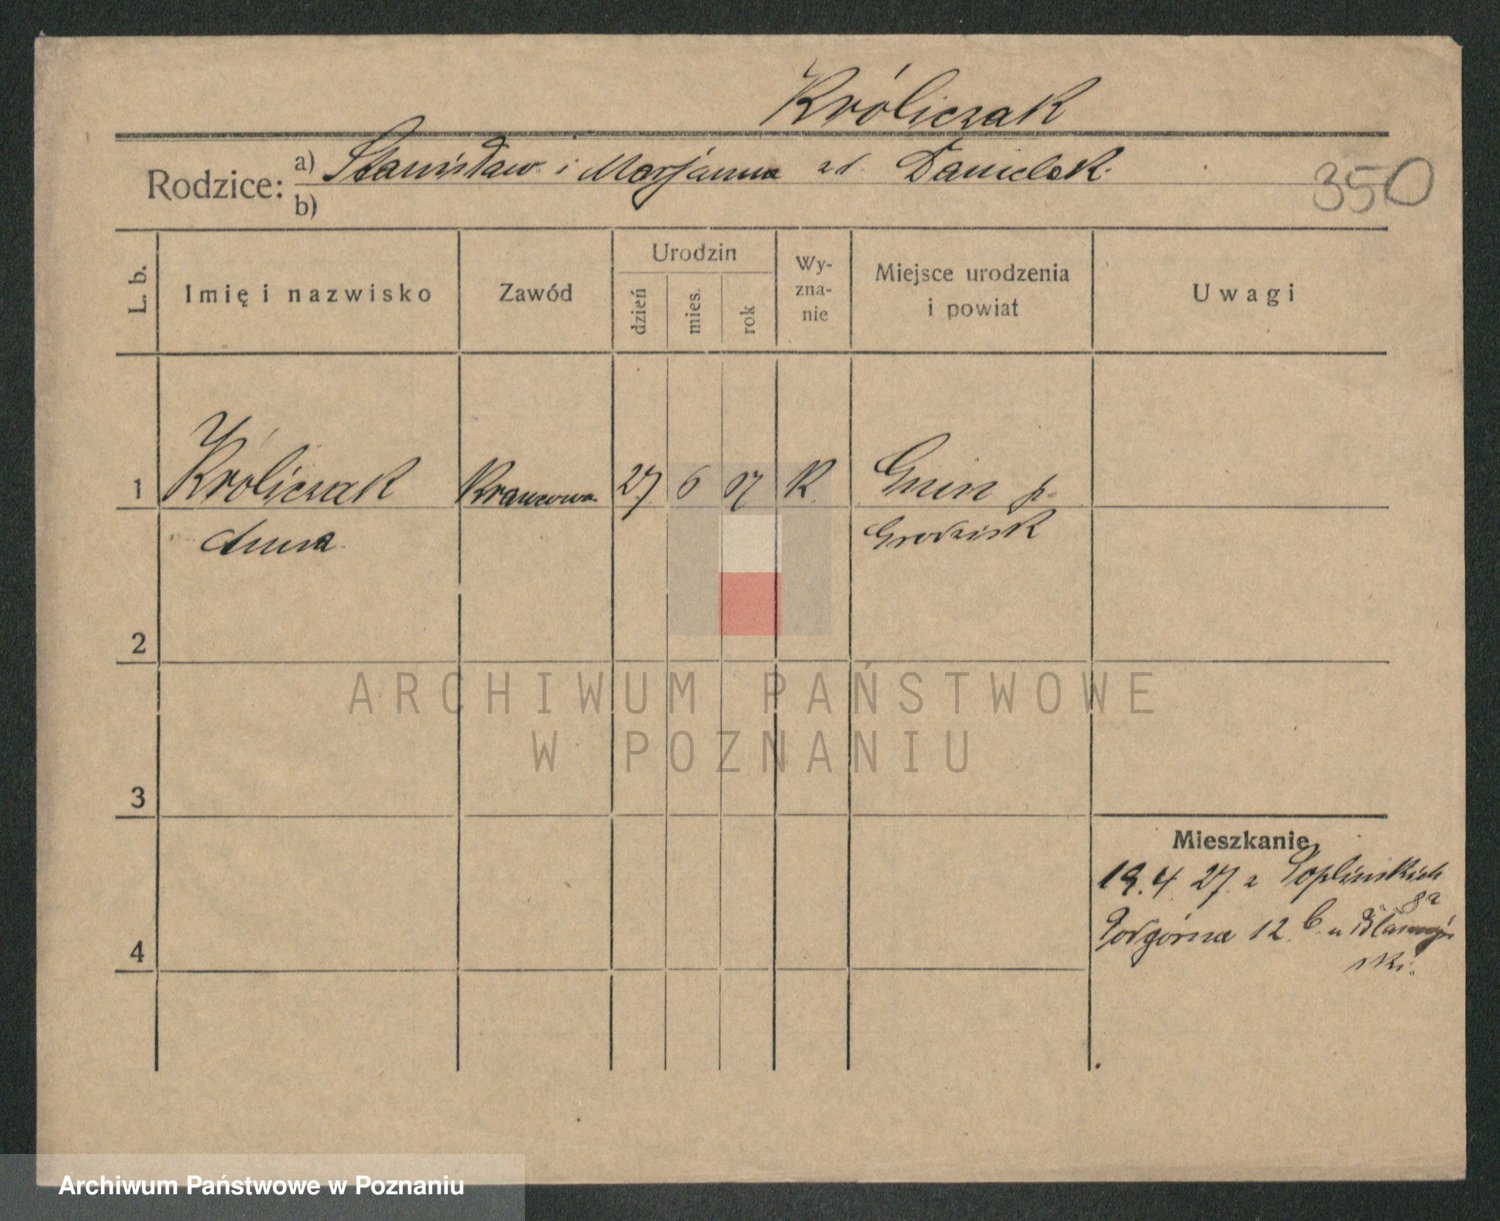 Króliczak
Rodzice: a) Stanisław i Marjanna zd. Danielak.
b)
350
L. b.
Imię i nazwisko
Zawód
Urodzin
dzień
mies.
rok
Wy-
zna-
nie
Miejsce urodzenia
i powiat
Uwagi
1 Króliczak Krawcowa 27. 6 07 K. Gnin p.
Anna. Grodzisk
2
3
4
Mieszkanie
19.4. 27. z
8a
Podgórna 12. u
ski.
ARCHIWUM PAŃSTWOWE
W POZNANIU
Archiwum Państwowe w Poznaniu